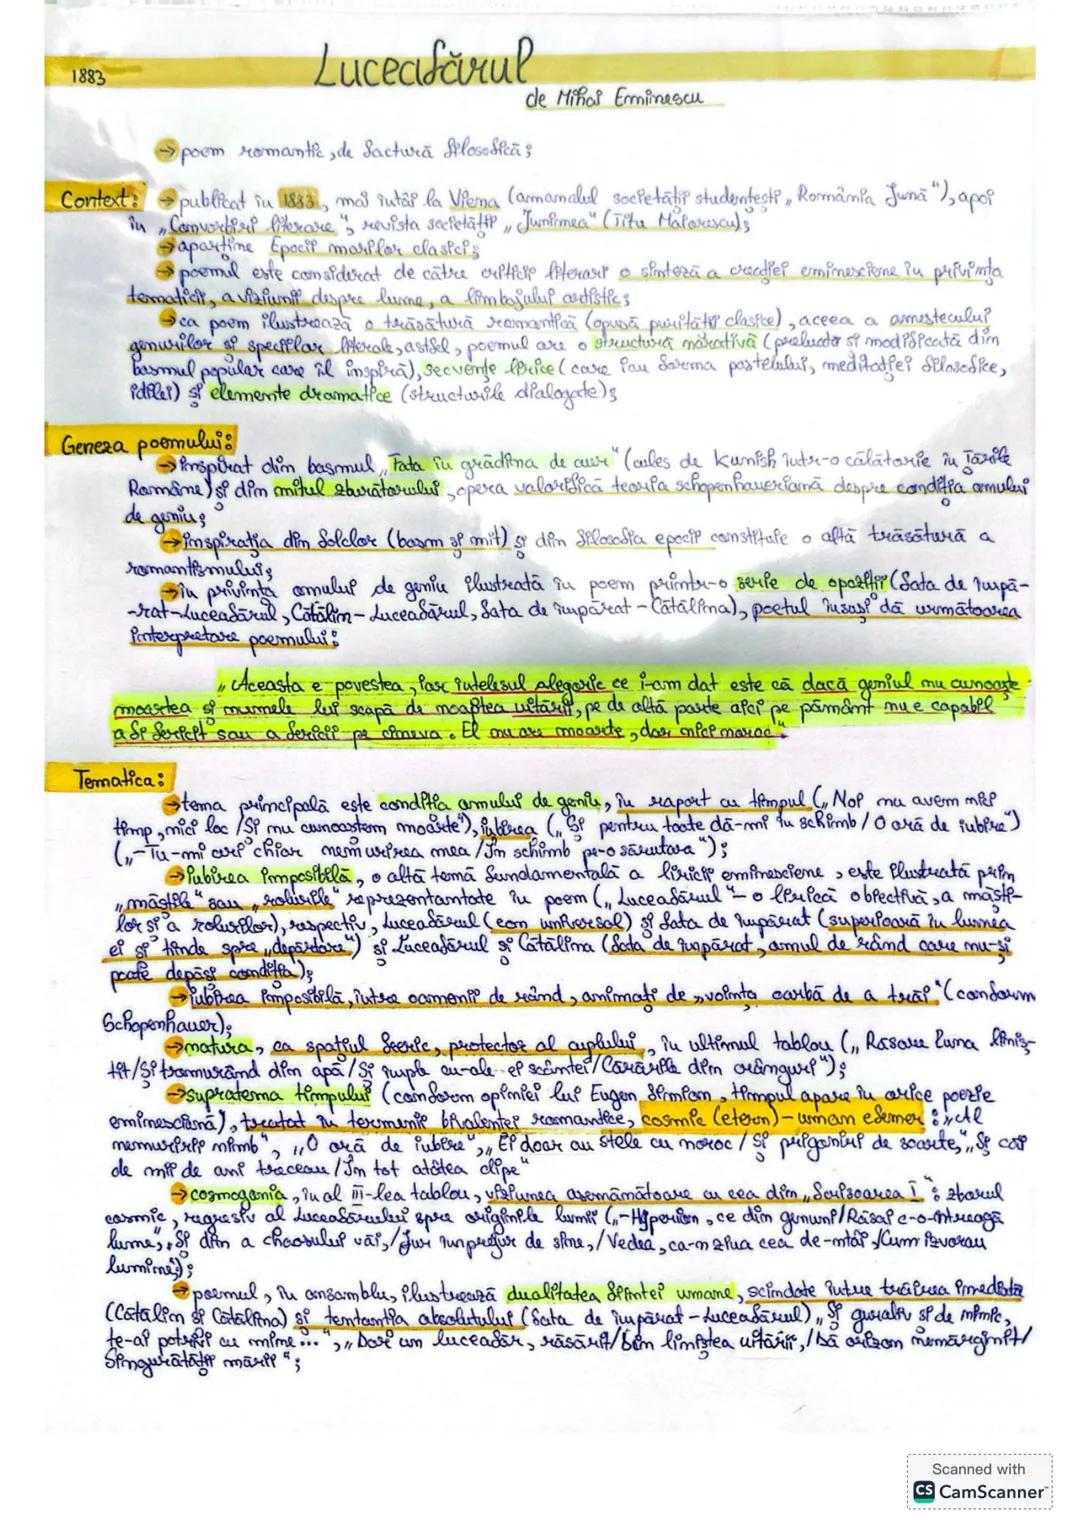 1883
Luceafărul
de Mihai Eminescu
→ poem romantic, de factură filosofică;
Context: → publicat în 1883, mai întâi la Viena (almanahul societății studențești „România Jună"), apoi
în „Convorbiri literare", revista societății „Junimea" (Titu Maiorescu);
→ aparține Epocii marilor clasici;
→ poemul este considerat de către criticii literari o sinteză a creației eminesciene în privința
tematicii, a viziunii despre lume, a limbajului artistic;
→ ca poem ilustrează o trăsătură romantică (opusă purității clasice), aceea a amestecului
genurilor și speciilor literale, astfel, poemul are o structură narativă (preluată și modificată din
basmul popular care îl inspiră), secvențe lirice (care iau forma pastelului, meditației filosofice,
idilei) și elemente dramatice (structurile dialogate);
Geneza poemului:
→ inspirat din basmul „Fata în grădina de aur" (cules de Kunish într-o călătorie în Țările
Române) și din mitul zburătorului, opera valorifică teoria schopenhaueriană despre condiția omului
de geniu;
→ inspirația din folclor (basm și mit) și din filosofia epocii constituie o altă trăsătură a
romantismului;
→ în privința omului de geniu ilustrată în poem printr-o serie de opoziții (fata de împă-
-rat-Luceafărul, Cătălin-Luceafărul, fata de împărat-Cătălina), poetul însuși dă următoarea
interpretare poemului:
„Aceasta e povestea, iar înțelesul alegoric ce i-am dat este că dacă geniul nu cunoaște
moartea și numele lui scapă de noaptea uitării, pe de altă parte aici pe pământ nu e capabil
a fi fericit sau a ferici pe cineva. El nu are moarte, dar nici noroc".
Tematica:
→ tema principală este condiția omului de geniu, în raport cu timpul („Noi nu avem nici
timp, nici loc /Și nu cunoaștem moarte"), iubirea („Și pentru toate dă-mi în schimb/ O oră de iubire")
(„-Tu-mi ceri chiar nemurirea mea /În schimb pe-o sărutare");
→ iubirea imposibilă, o altă temă fundamentală a liricii eminesciene, este ilustrată prin
„măștile" sau „rolurile" reprezentantate în poem („Luceafărul"- o lirică obiectivă, a măști-
lor și a rolurilor), respectiv, Luceafărul (eon universal) și fata de împărat (superioară în lumea
ei și tinde spre „depărtare") și Luceafărul și Cătălina (fata de împărat, omul de rând care nu-și
poate depăși condiția);
→ iubirea imposibilă, între oamenii de rând, animați de „voința oarbă de a trăi" (conform
Schopenhauer);
→ natura, ca spațiul feeric, protector al cuplului, în ultimul tablou („Răsare luna liniș-
tit/Și tremurând din apă/Și împle cu-ale ei scântei/Cărările din crânguri");
→ supratema timpului (conform opiniei lui Eugen Simion, timpul apare în orice poezie
eminesciană), tratat în termenii bivalenței romantice, cosmic (etern)-uman efemer: „Al
nemuririi nimb", „O oră de iubire", „Ei doar au stele cu noroc / Și prigoniri de soarte", „Și căi
de mii de ani treceau /În tot atâtea clipe"
→ cosmogonia, în al III-lea tablou, viziunea asemănătoare cu cea din „Scrisoarea I": zborul
cosmic, regresiv al Luceafărului spre originile lumii („-Hyperion, ce din genuni/Răsai c-o-ntreagă
lume", „Și din a chaosului văi,/Jur împrejur de sine,/Vedea, ca-n ziua cea de-ntâi,/Cum izvorau
lumine);
→ poemul, în ansamblu, ilustrează dualitatea ființei umane, scindate între trăirea imediată
(Cătălin și Cătălina) și tentantia absolutului (fata de împărat-Luceafărul) „Și guraliv și de nimic,
te-ai potrivi cu mine...", „Dar un luceafăr, răsărit/Din liniștea uitării,/Dă orizon nemărginit/
Singurătății mării";
Scanned with
CS CamScanner